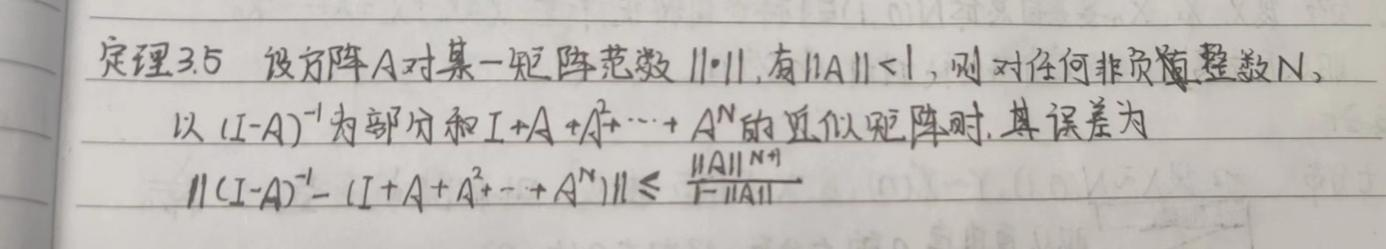 定理3.5 设方阵A对某一矩阵范数||•||,有||A||<1,则对任何非负整数N,
以(I-A)⁻¹为部分和I+A+A²+…+Aᴺ的近似矩阵时,其误差为
||(I-A)⁻¹-(I+A+A²+…+Aᴺ)||≤||A||ᴺ⁺¹/(1-||A||)